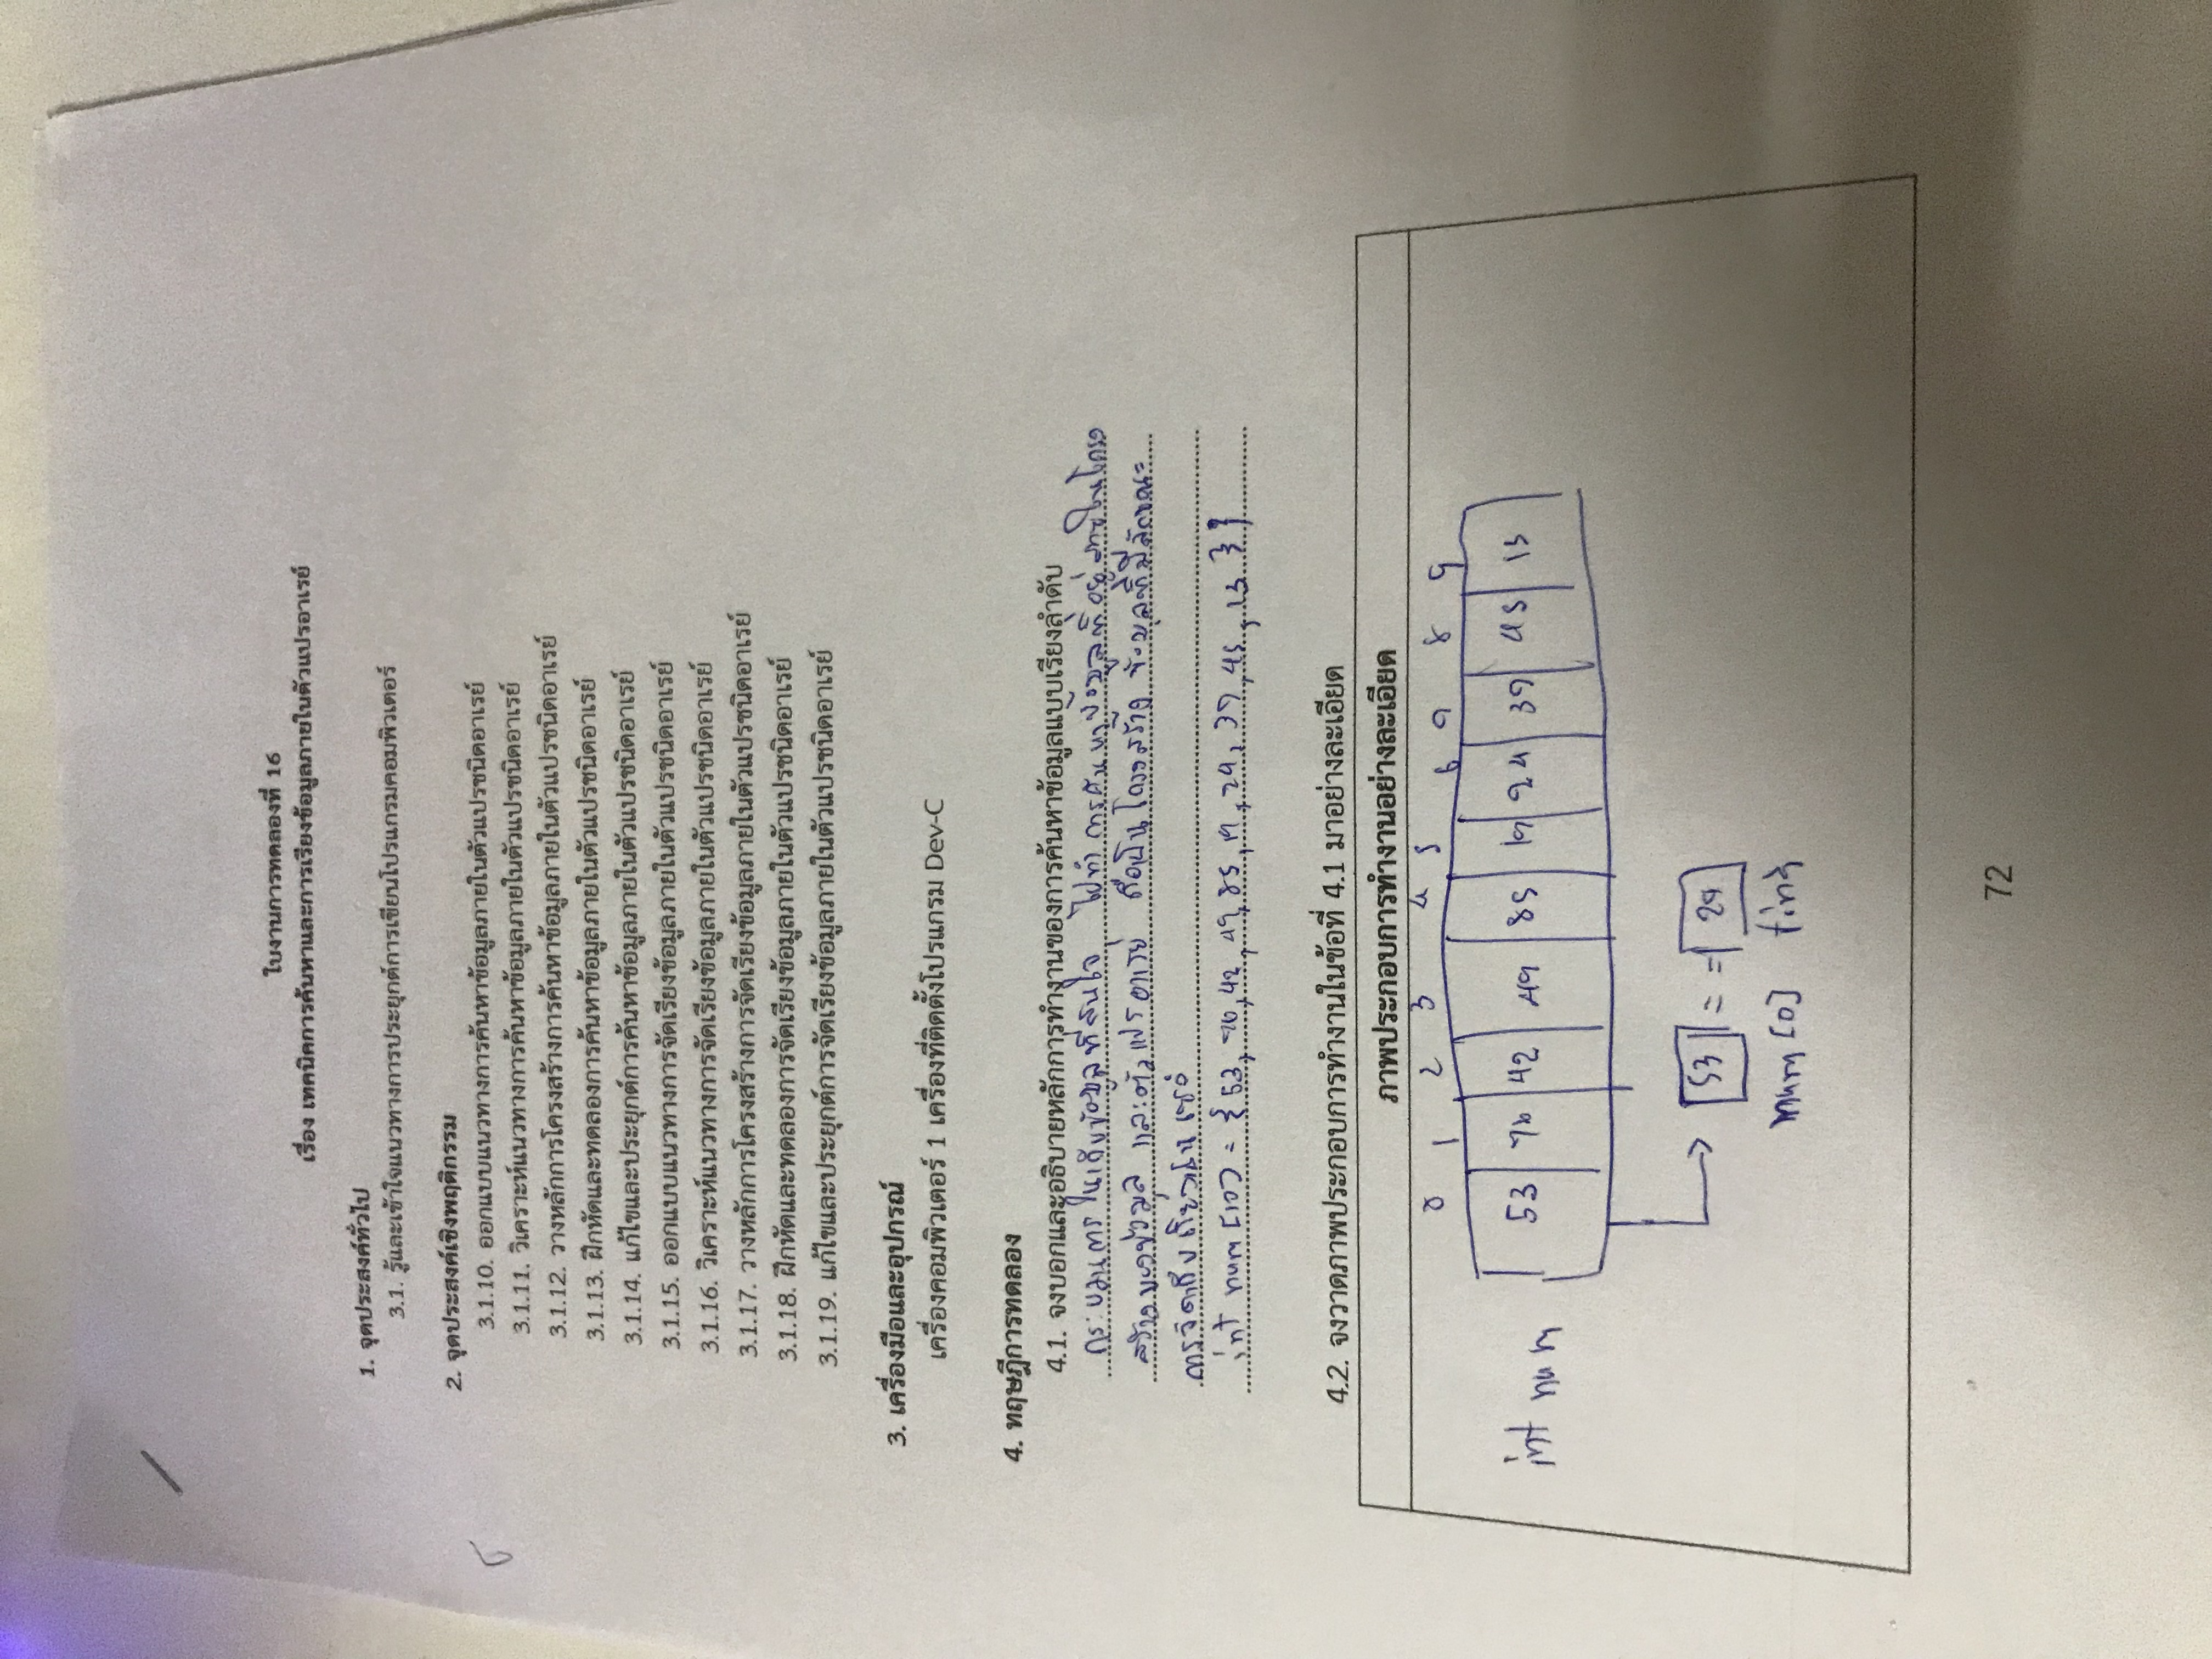 ใบงานการทดลองที่ 16
เรื่อง เทคนิคการค้นหาและการเรียงข้อมูลภายในตัวแปรอาเรย์
1. จุดประสงค์ทั่วไป
3.1. รู้และเข้าใจแนวทางการประยุกต์การเขียนโปรแกรมคอมพิวเตอร์
2. จุดประสงค์เชิงพฤติกรรม
3.1.10. ออกแบบแนวทางการค้นหาข้อมูลภายในตัวแปรชนิดอาเรย์
3.1.11. วิเคราะห์แนวทางการค้นหาข้อมูลภายในตัวแปรชนิดอาเรย์
3.1.12. วางหลักการโครงสร้างการค้นหาข้อมูลภายในตัวแปรชนิดอาเรย์
3.1.13. ฝึกหัดและทดลองการค้นหาข้อมูลภายในตัวแปรชนิดอาเรย์
3.1.14. แก้ไขและประยุกต์การค้นหาข้อมูลภายในตัวแปรชนิดอาเรย์
3.1.15. ออกแบบแนวทางการจัดเรียงข้อมูลภายในตัวแปรชนิดอาเรย์
3.1.16. วิเคราะห์แนวทางการจัดเรียงข้อมูลภายในตัวแปรชนิดอาเรย์
3.1.17. วางหลักการโครงสร้างการจัดเรียงข้อมูลภายในตัวแปรชนิดอาเรย์
3.1.18. ฝึกหัดและทดลองการจัดเรียงข้อมูลภายในตัวแปรชนิดอาเรย์
3.1.19. แก้ไขและประยุกต์การจัดเรียงข้อมูลภายในตัวแปรชนิดอาเรย์
3. เครื่องมือและอุปกรณ์
เครื่องคอมพิวเตอร์ 1 เครื่องที่ติดตั้งโปรแกรม Dev-C
4. ทฤษฎีการทดลอง
4.1. จงบอกและอธิบายหลักการทำงานของการค้นหาข้อมูลแบบเรียงลำดับ
กระบวนการ ข้อมูลที่สนใจ ไปทำ การค้นหาข้อมูลที่อยู่ภายในโครง
สร้างของข้อมูล และตัวแปรอาเรย์ ถือเป็นโครงสร้าง ข้อมูลที่มีลักษณะ
การจัดเก็บ
int num [10] = { 53, 76, 42, 49, 85, 19, 24, 37, 45, 13 };
4.2. จงวาดภาพประกอบการทำงานในข้อที่ 4.1 มาอย่างละเอียด
ภาพประกอบการทำงานอย่างละเอียด
0 1 2 3 4 5 6 7 8 9
int num 53 76 42 49 85 19 24 37 45 13
53 == 24
num [0] find
72